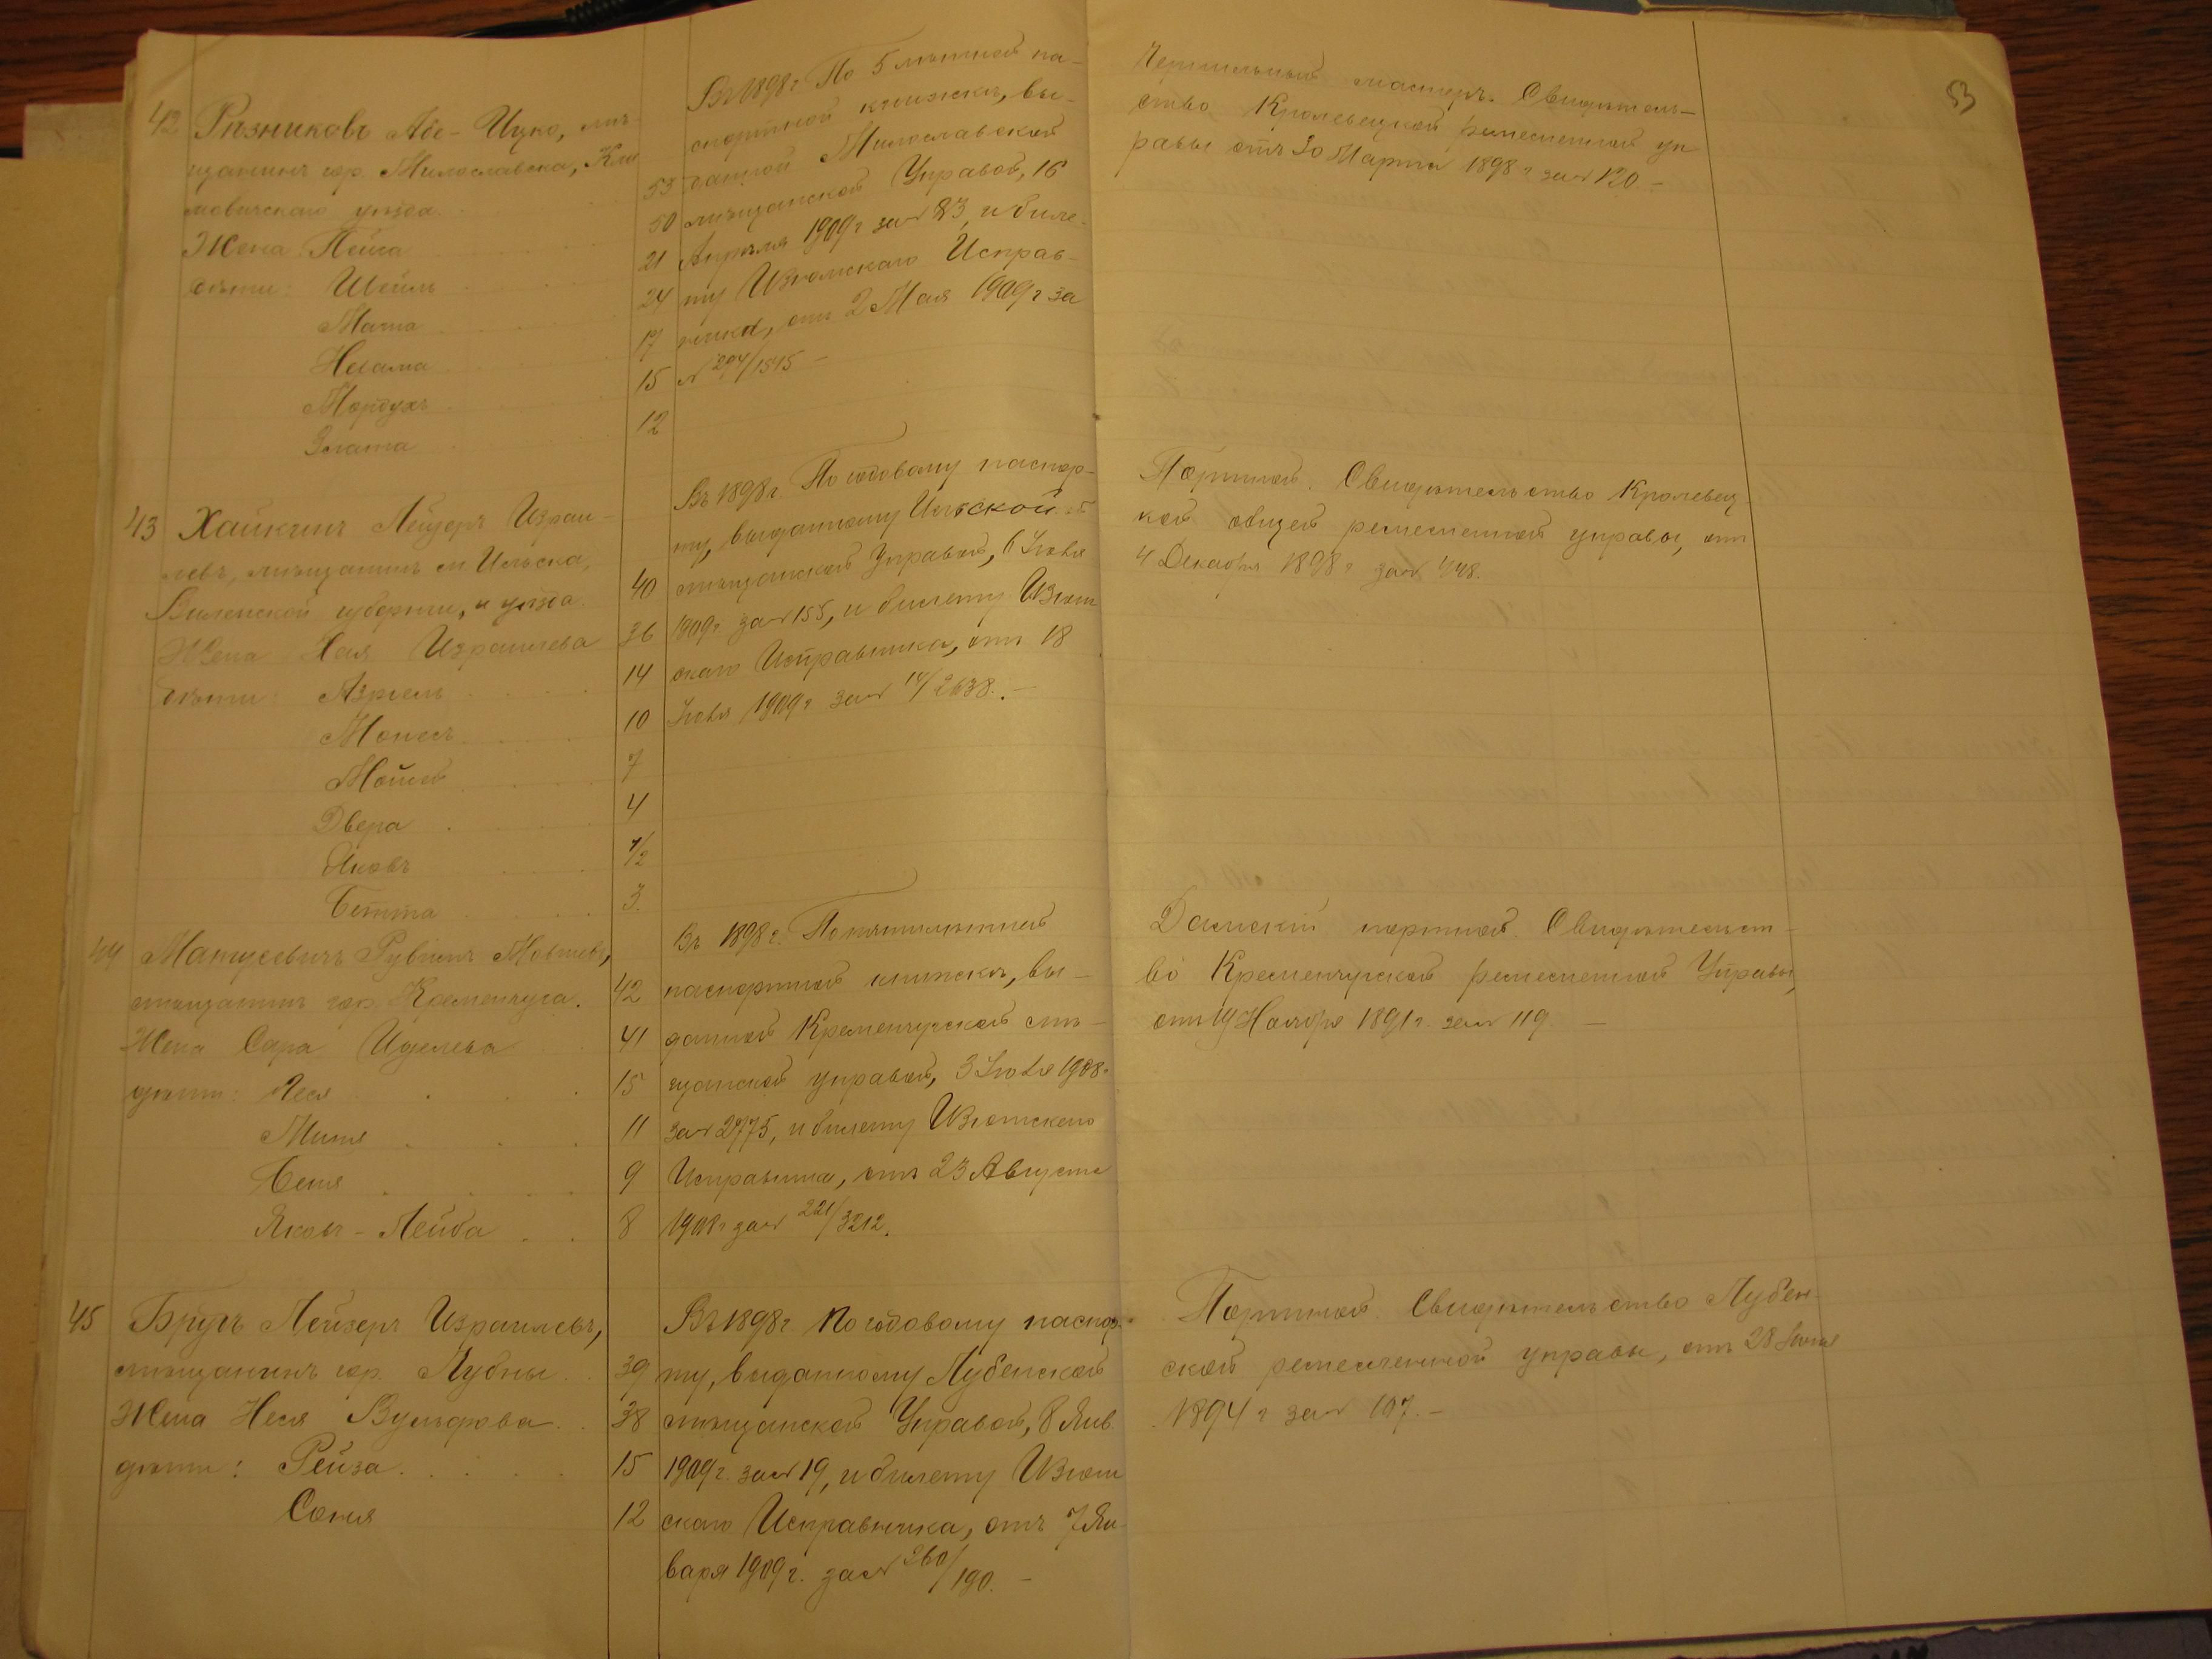 53
42 Рѣзниковъ Абе-Ицко, мѣ-
щанинъ гор. Милославска, Кли
мовичскаго уѣзда. 53
Жена Пейга 50
дѣти: Шейль 21
Мата 24
Нехама 17
Мордухъ 15
Злата 12
Въ 1898 г По 5 лѣтней па-
спортной книжкѣ, вы-
данной Милославской
мѣщанской Управой, 16
Апрѣля 1909 г за № 83, и биле-
ту Изюмскаго Исправ-
ника, отъ 2 Мая 1909 г за
№ 294/1515 —
мастеръ. Свидѣтель-
ство Кролевецкой ремесленной уп
равы отъ 30 Марта 1898 г за № 120 —
43 Хайкинъ Лейзеръ Израи-
левъ, мѣщанинъ м Ильска,
Виленской губерніи, и уѣзда. 40
Жена Хая Израилева 36
дѣти: Азріель 14
Монесъ 10
Мойсей 7
Двера 4
Яковъ 1/2
Бетта 3.
Въ 1898 г. По годовому паспор-
ту, выданному Ильской
мѣщанской Управой, 6 Іюня
1909 г за № 155, и билету Изюм
скаго Исправника, отъ 18
Іюня 1909 г за № /2638. —
Портной. Свидѣтельство Кролевец-
кой общей ремесленной управы, отъ
4 Декабря 1898 г за № 448.
44 Матусевичъ Рувинъ Мовшевъ,
мѣщанинъ гор. Кременчуга. 42
Жена Сара Иделева 41
дѣти: Песя 15
Митя 11
Беня 9
Яковъ-Лейба 8
Въ 1898 г. По пятилѣтней
паспортной книжкѣ, вы-
данной Кременчугской мѣ-
щанской управой, 3 Іюня 1908 г
за № 2775, и билету Изюмскаго
Исправника, отъ 23 Августа
1908 г за № 221/3212.
Дамскій портной. Свидѣтельст-
во Кременчугской ремесленной Управы,
отъ 19 Ноября 1891 г. за № 119. —
45 Брукъ Лейзеръ Израилевъ,
мѣщанинъ гор. Лубны 39
Жена Неся Вульфова 38
дѣти: Рейза 15
Соня 12
Въ 1898 г По годовому паспор-
ту, выданному Лубенской
мѣщанской Управой, 8 Янв.
1909 г. за № 19, и билету Изюм
скаго Исправника, отъ 7 Ян-
варя 1909 г. за № 260/190. —
Портной. Свидѣтельство Лубен-
ской ремесленной управы, отъ 28 Іюня
1894 г за № 107. —